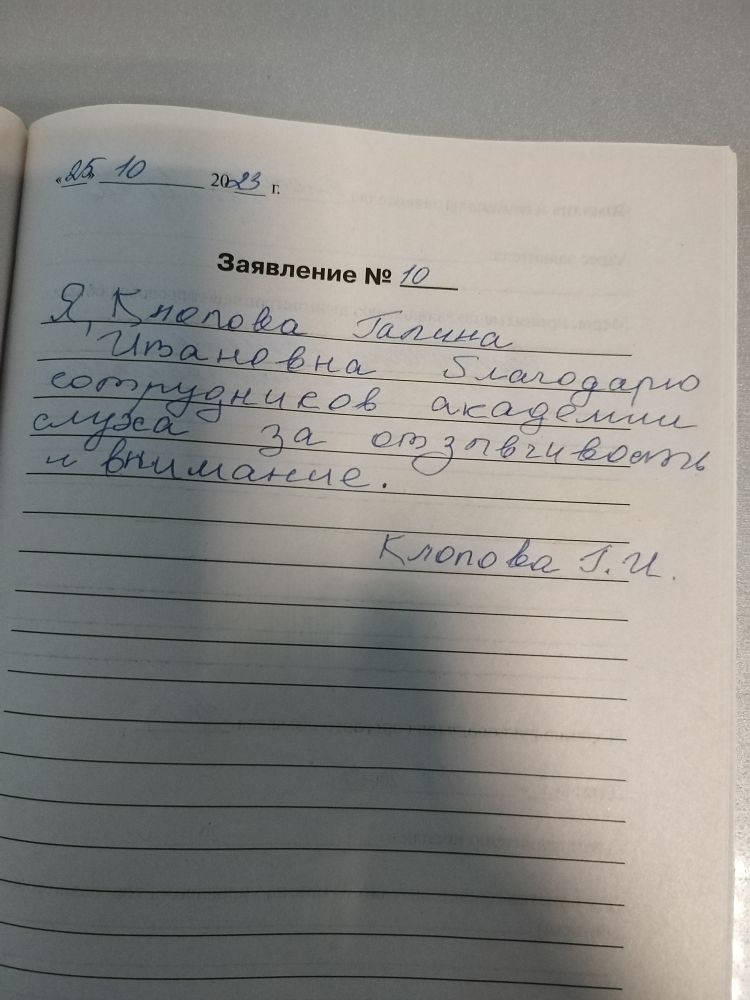 «25» 10 2023 г.
Заявление № 10
Я, Клопова Галина
Ивановна благодарю
сотрудников академии
слуха за отзывчивость
и внимание.
Клопова Г.И.